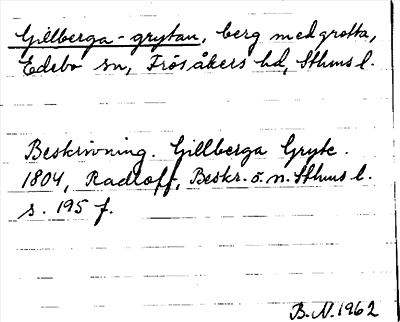 Gillberga-grytan, berg med grotta,
Edebo sn, Frösåkers hd, Sthms l.
Beskrivning. Gillberga Gryte.
1804, Radloff, Beskr. ö. n. Sthms l.
s. 195 f.
B.N. 1962